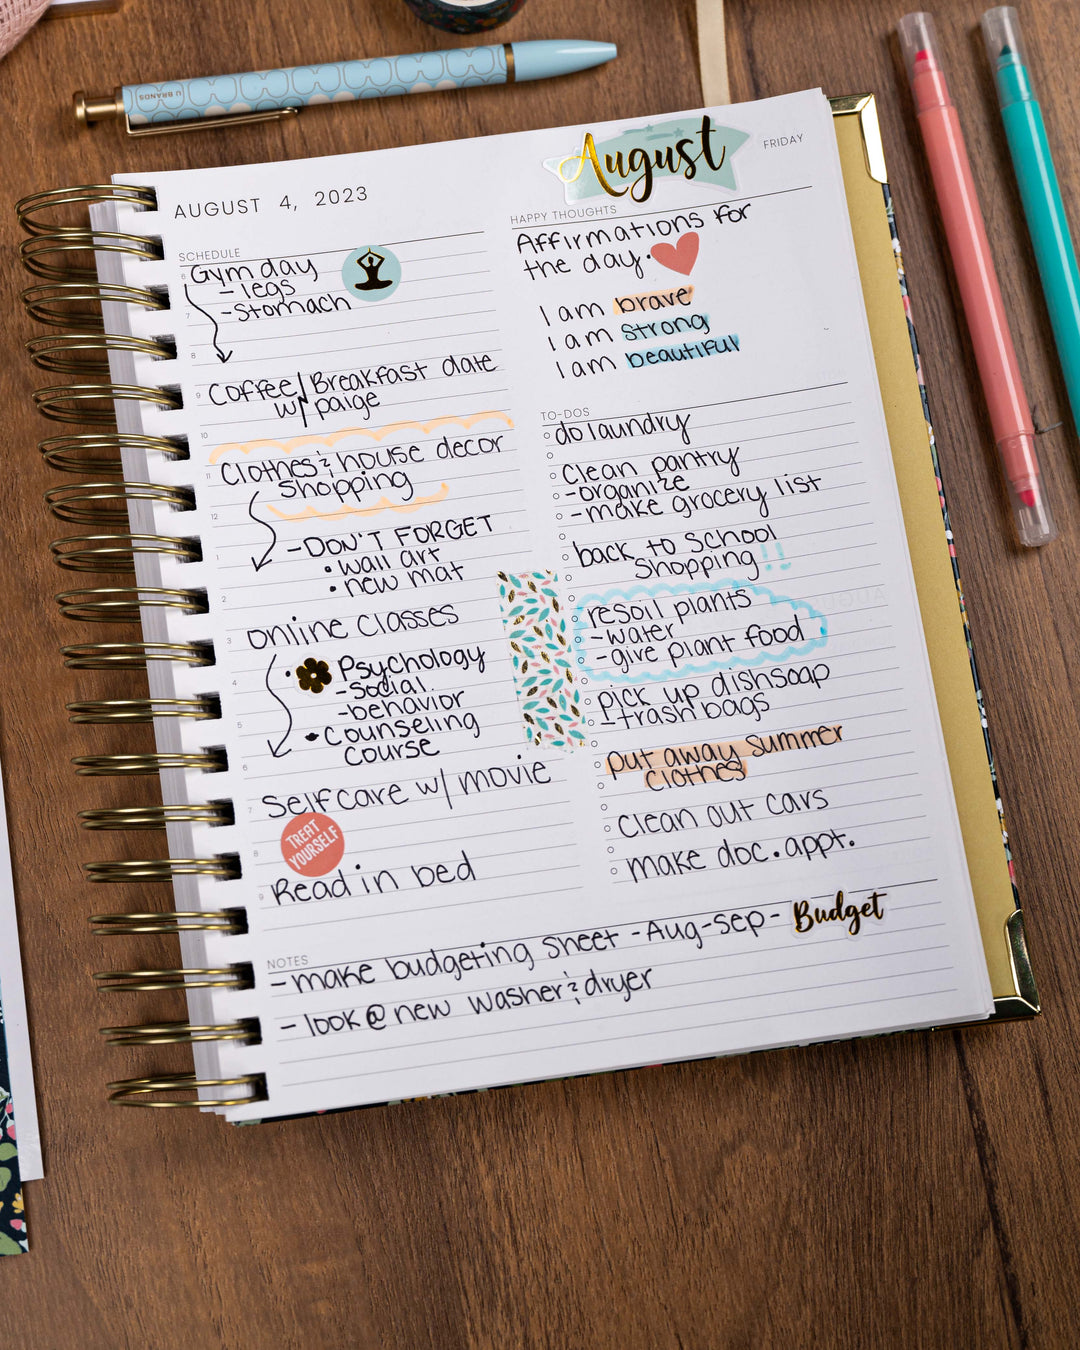 U BRANDS
AUGUST 4, 2023
August
FRIDAY
SCHEDULE
6
Gym day
- legs
- Stomach
7
8
9
Coffee/Breakfast date
w/ paige
10
11
Clothes & house decor
Shopping
12
- DON'T FORGET
1
• wall art
• new mat
2
3
online classes
• Psychology
4
- social
- behavior
5
• Counseling
Course
6
7
Selfcare w/ movie
8
TREAT
YOURSELF
9
Read in bed
HAPPY THOUGHTS
Affirmations for
the day.
I am brave
I am strong
I am beautiful
TO-DOS
do laundry
Clean pantry
- organize
- make grocery list
back to school
shopping!!
resoil plants
- water
- give plant food
pick up dishsoap
- trash bags
put away summer
clothes
clean out cars
make doc. appt.
NOTES
- make budgeting sheet - Aug-sep - Budget
- look @ new washer & dryer